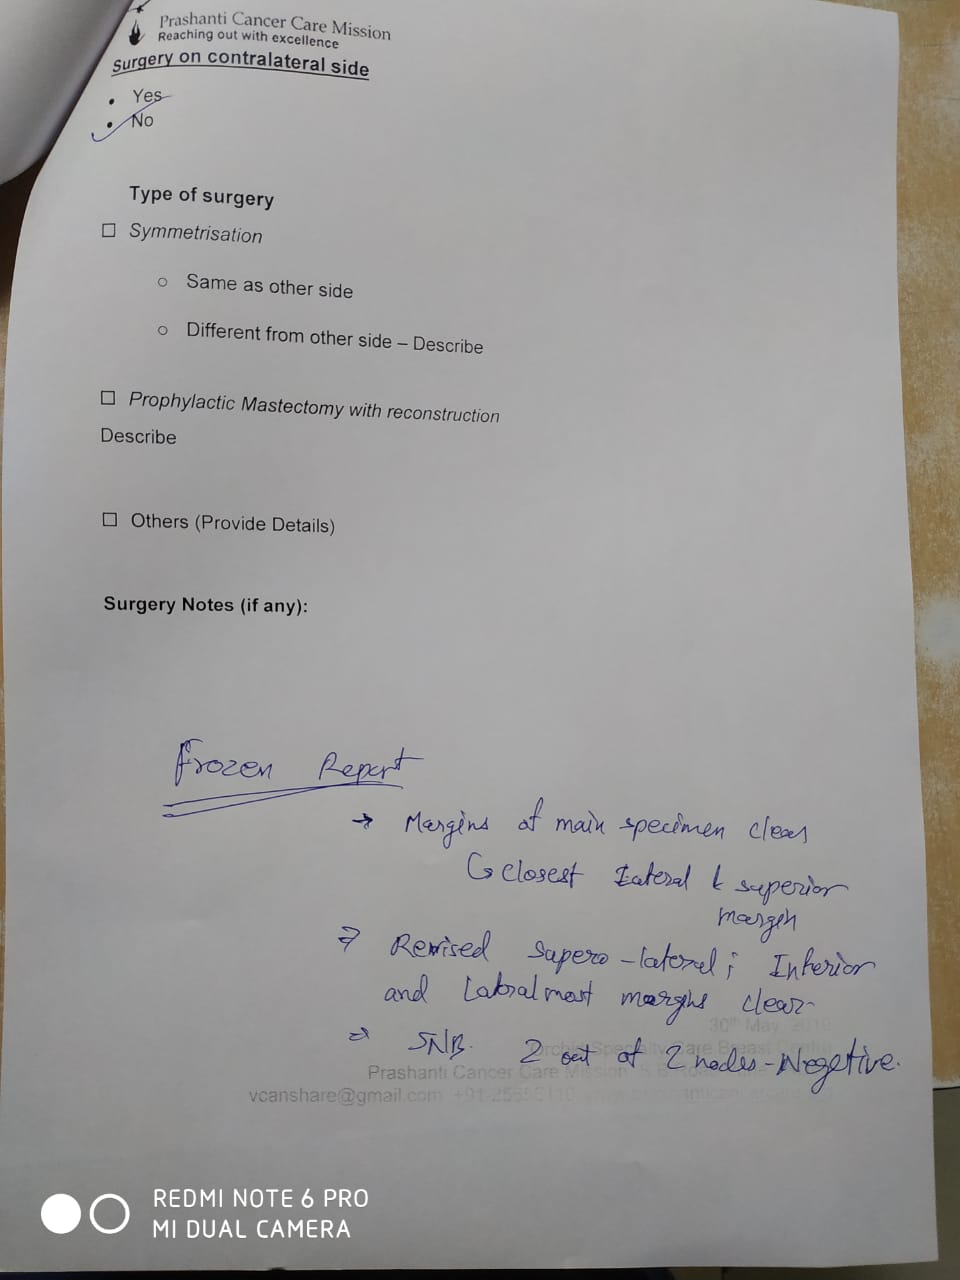 Prashanti Cancer Care Mission
Reaching out with excellence
Surgery on contralateral side
• Yes
• No
Type of surgery
☐ Symmetrisation
○ Same as other side
○ Different from other side – Describe
☐ Prophylactic Mastectomy with reconstruction
Describe
☐ Others (Provide Details)
Surgery Notes (if any):
Frozen Report
→ Margins of main specimen clear
↳ closest lateral & superior
margin
→ Revised supero-lateral; Inferior
and Lateral most margins clear
30th May, 2019
→ SNB. 2 out of 2 nodes - Negetive.
Prashanti Cancer Care Mission
vcanshare@gmail.com
REDMI NOTE 6 PRO
MI DUAL CAMERA